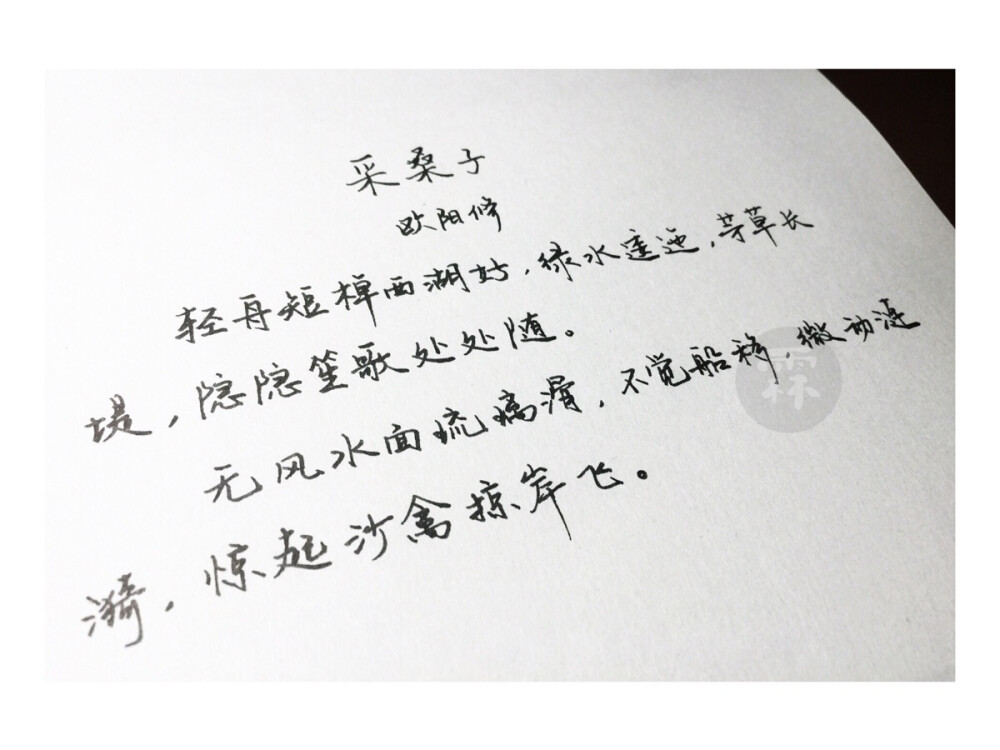 采桑子
欧阳修
轻舟短棹西湖好,绿水逶迤,芳草长
堤,隐隐笙歌处处随。
无风水面琉璃滑,不觉船移,微动涟
漪,惊起沙禽掠岸飞。
霖